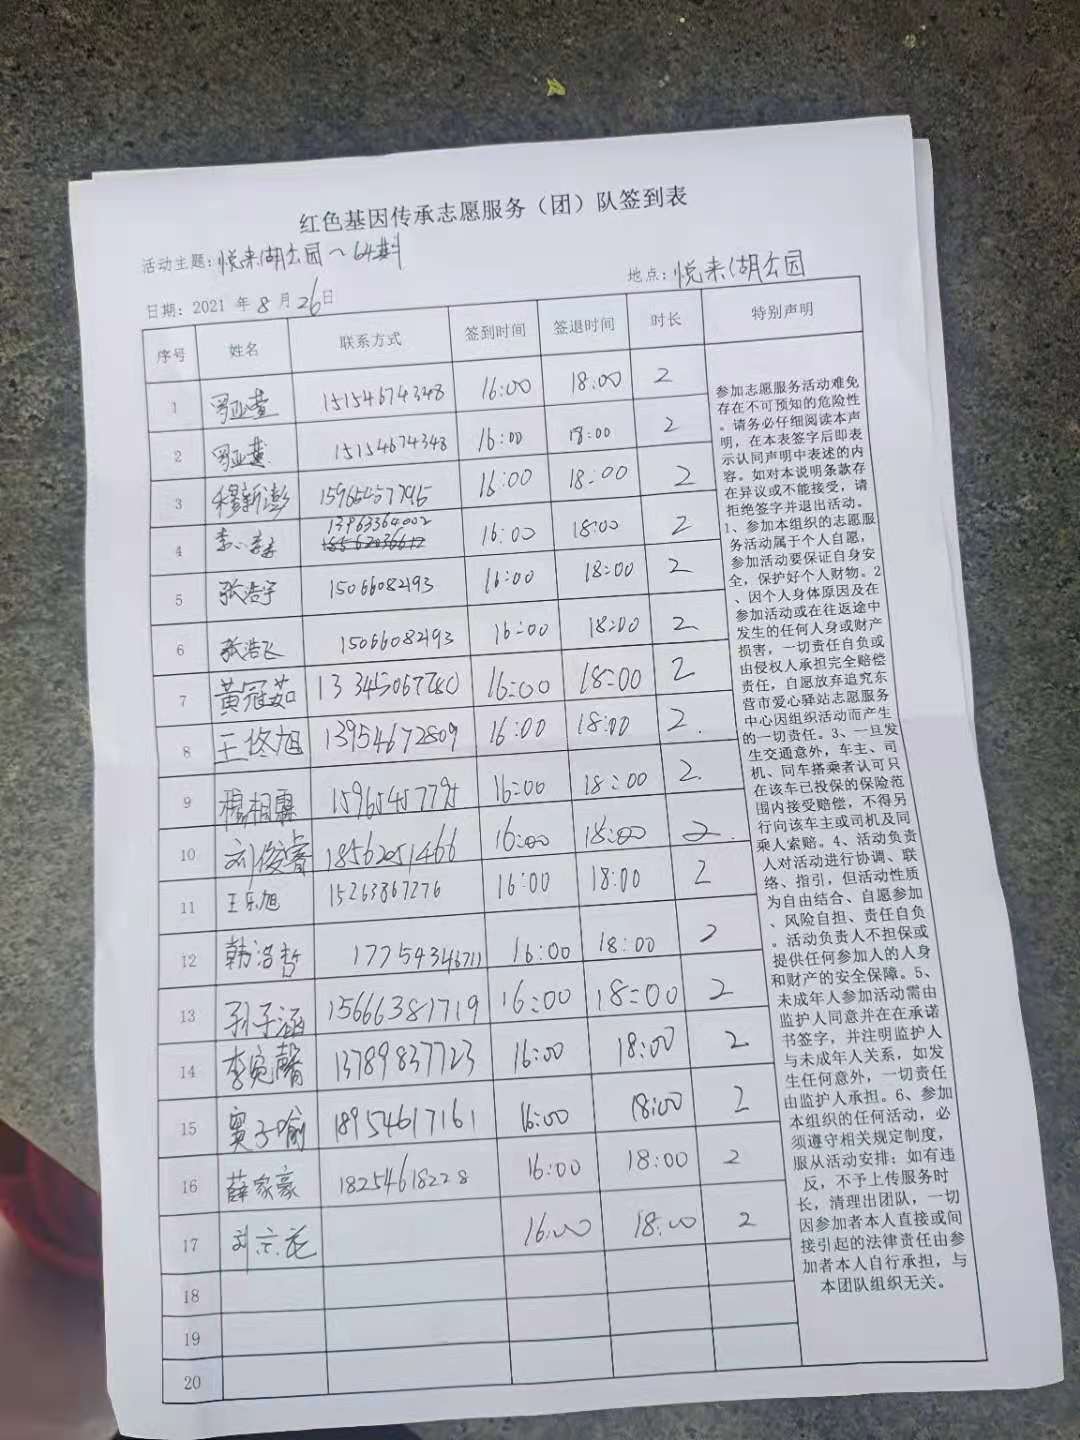 红色基因传承志愿服务（团）队签到表
活动主题：悦来湖公园～64期
地点：悦来湖公园
日期：2021 年 8 月 26 日
序号 姓名 联系方式 签到时间 签退时间 时长 特别声明
1 15154674348 16:00 18:00 2
2 15154674348 16:00 18:00 2
3 穆新澎 15965457795 16:00 18:00 2
13963364002
4 16:00 18:00 2
5 张浩宇 15066082193 16:00 18:00 2
6 张浩飞 15066082193 16:00 18:00 2
7 黄冠茹 13345067780 16:00 18:00 2
8 王佟旭 13954672809 16:00 18:00 2.
9 15965457795 16:00 18:00 2.
10 刘俊睿 18562051466 16:00 18:00 2.
11 王乐旭 15263867276 16:00 18:00 2
12 韩浩哲 17754343711 16:00 18:00 2
13 孙子涵 15666381719 16:00 18:00 2
14 李宛馨 13789837723 16:00 18:00 2
15 窦子喻 18954617161 16:00 18:00 2
16 薛家豪 18254618228 16:00 18:00 2
17 16:00 18:00 2
18
19
20
参加志愿服务活动难免
存在不可预知的危险性
。请务必仔细阅读本声
明，在本表签字后即表
示认同声明中表述的内
容。如对本说明条款存
在异议或不能接受，请
拒绝签字并退出活动。
1、参加本组织的志愿服
务活动属于个人自愿，
参加活动要保证自身安
全，保护好个人财物。2
、因个人身体原因及在
参加活动或在往返途中
发生的任何人身或财产
损害，一切责任自负或
由侵权人承担完全赔偿
责任，自愿放弃追究东
营市爱心驿站志愿服务
中心因组织活动而产生
的一切责任。3、一旦发
生交通意外，车主、司
机、同车搭乘者认可只
在该车已投保的保险范
围内接受赔偿，不得另
行向该车主或司机及同
乘人索赔。4、活动负责
人对活动进行协调、联
络、指引，但活动性质
为自由结合、自愿参加
、风险自担、责任自负
。活动负责人不担保或
提供任何参加人的人身
和财产的安全保障。5、
未成年人参加活动需由
监护人同意并在在承诺
书签字，并注明监护人
与未成年人关系，如发
生任何意外，一切责任
由监护人承担。6、参加
本组织的任何活动，必
须遵守相关规定制度，
服从活动安排；如有违
反，不予上传服务时
长，清理出团队，一切
因参加者本人直接或间
接引起的法律责任由参
加者本人自行承担，与
本团队组织无关。